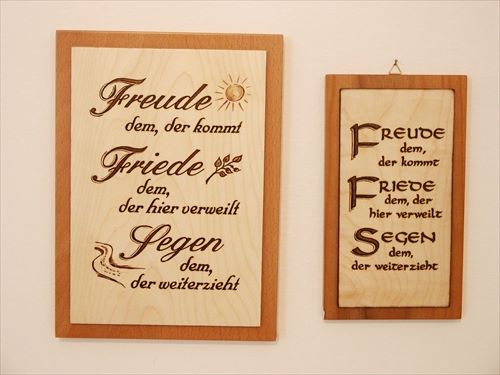 Freude
dem, der kommt
Friede
dem,
der hier verweilt
Segen
dem,
der weiterzieht
FREUDE
dem,
der kommt
FRIEDE
dem, der
hier verweilt
SEGEN
dem,
der weiterzieht